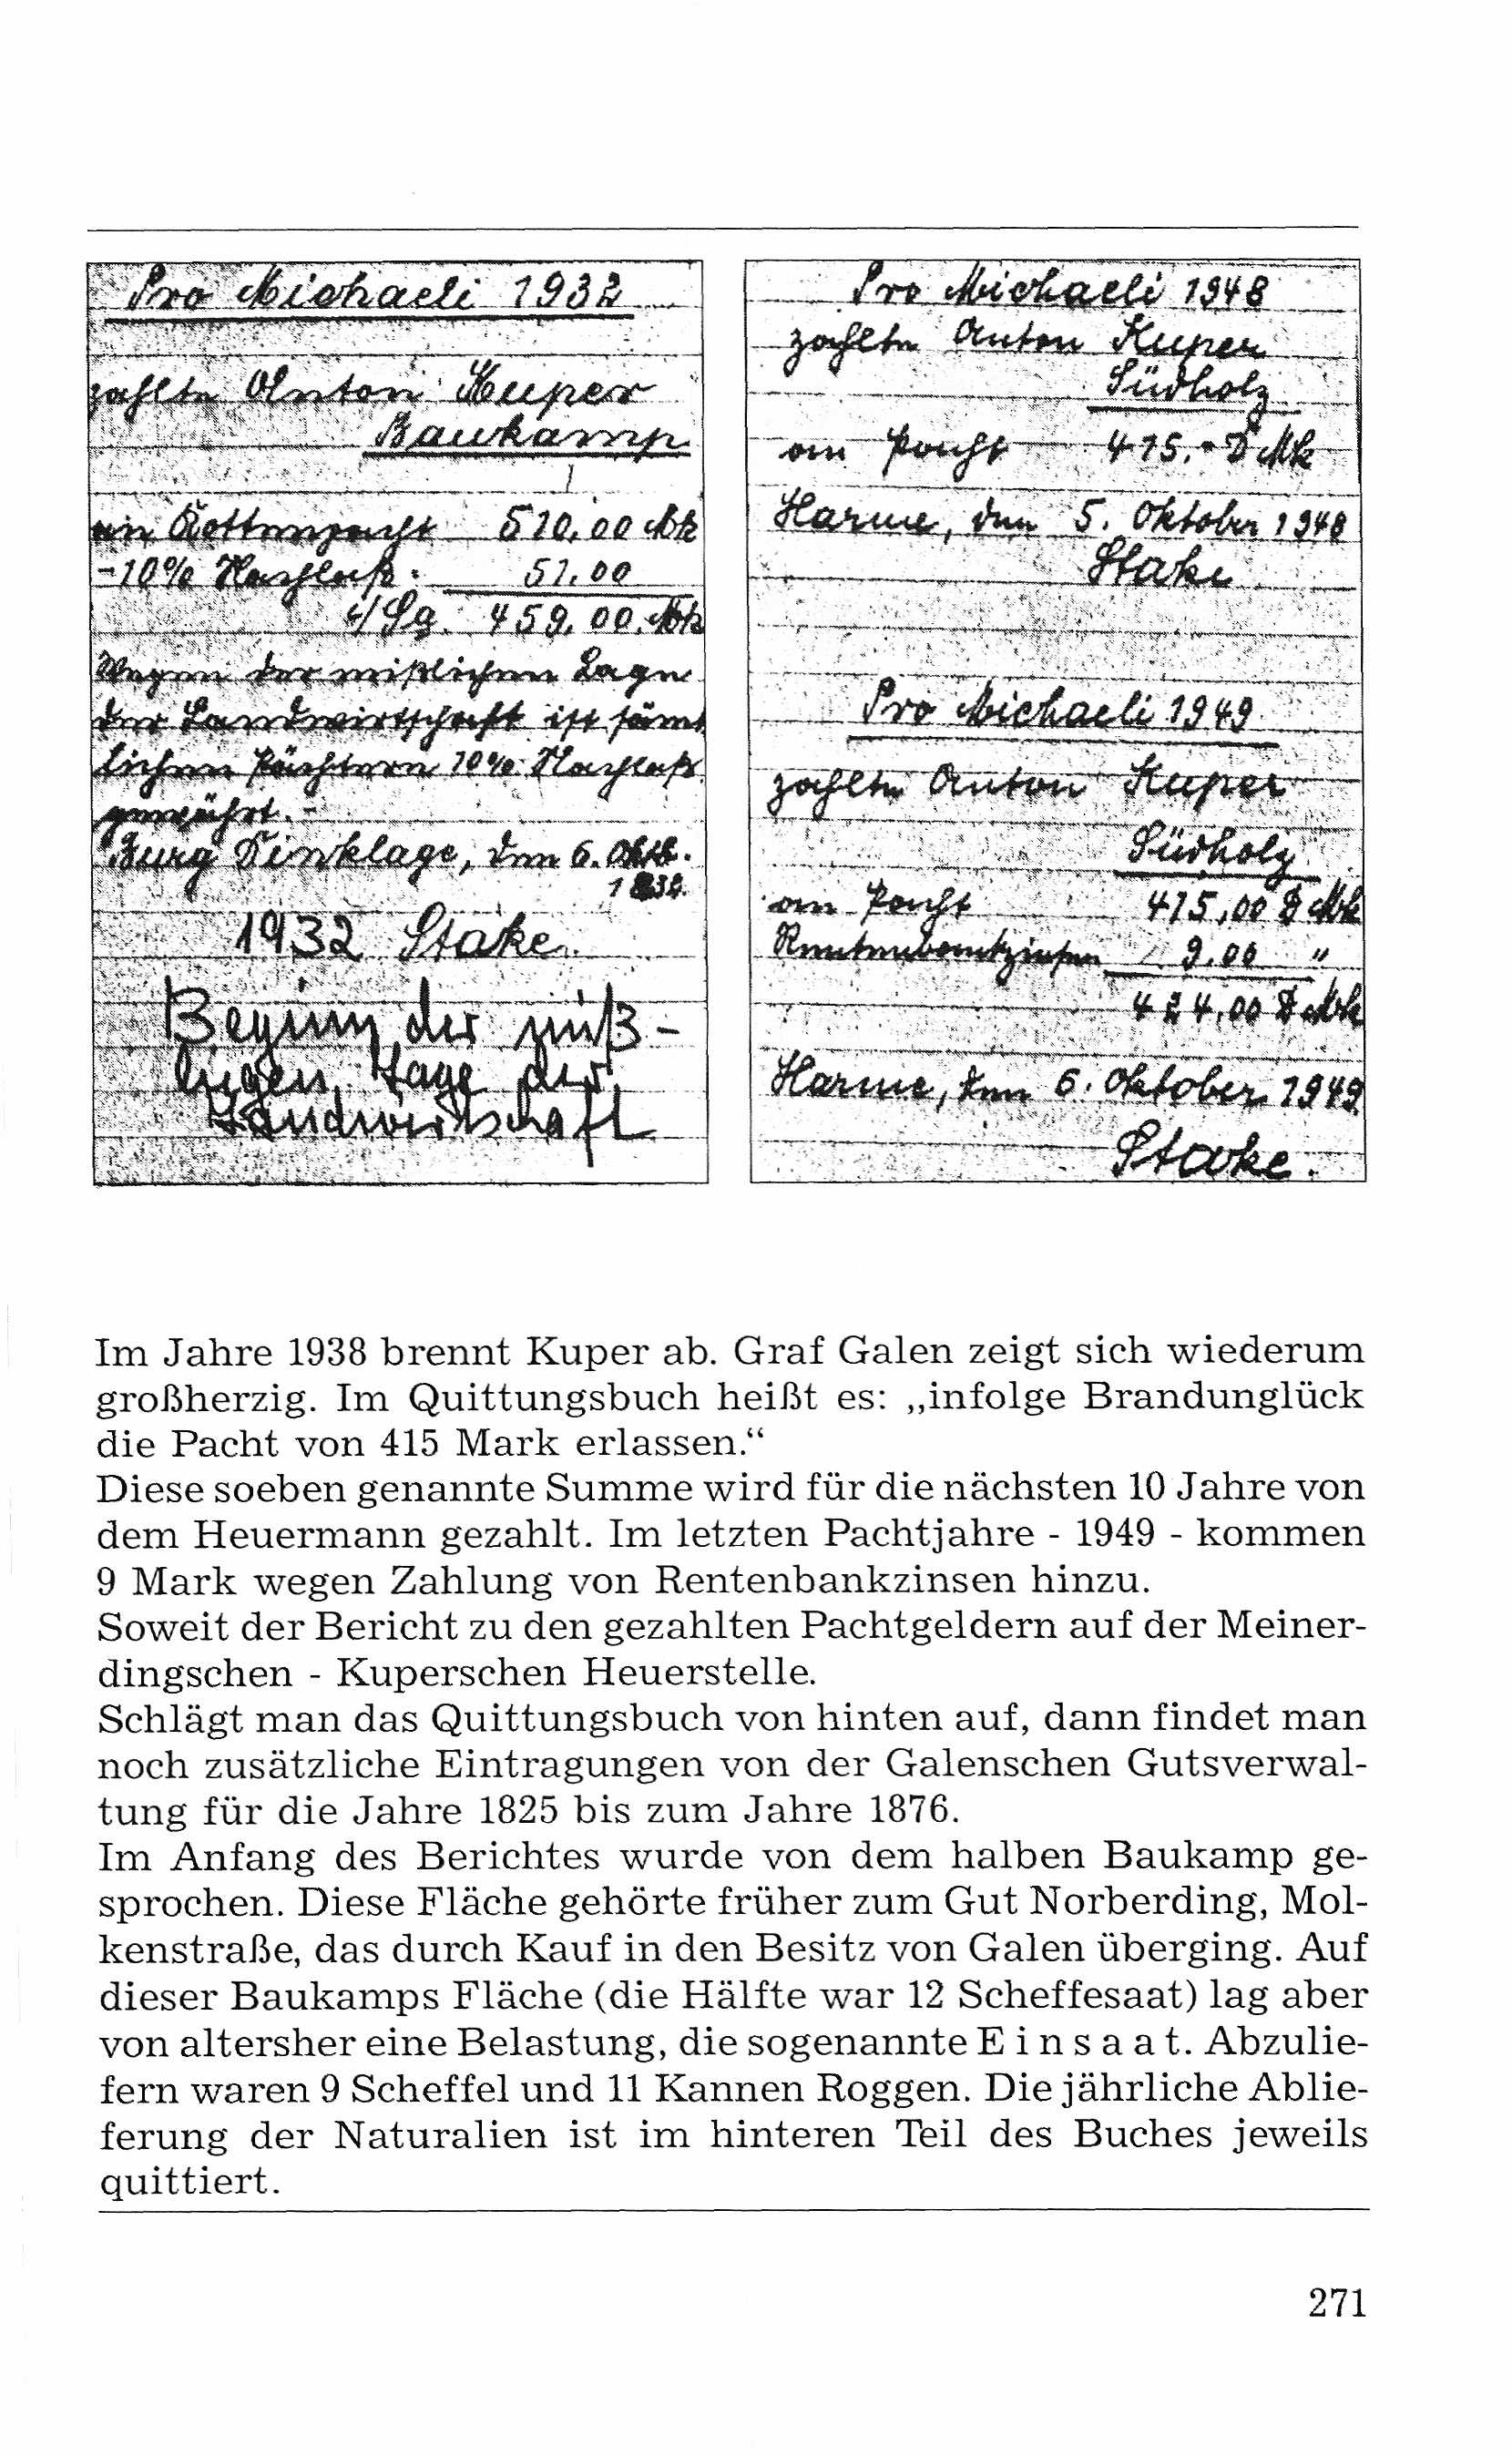 Pro Michaeli 1932
zahlte Anton Kuper
Baukamp
an Kottenpacht 510,00 Mk
-10% Nachlaß. 51,00
459,00 Mk
Wegen der mißlichen Lage
der Landwirtschaft ist sämt
lichen Pächtern 10% Nachlaß
gewährt.-
Burg Dinklage, den 6. Oktb.
1932.
1932 Stake.
Beginn der miß-
ligen Lage der
Landwirtschaft
Pro Michaeli 1948
zahlte Anton Kuper
Südholz
an Pacht 415.- D Mk
Harme, den 5. Oktober 1948
Stake
Pro Michaeli 1949
zahlte Anton Kuper
Südholz
an Pacht 415,00 D Mk
Rentenbankzinsen 9.00 "
424,00 D Mk
Harme, den 6. Oktober 1949
Stake.
Im Jahre 1938 brennt Kuper ab. Graf Galen zeigt sich wiederum
großherzig. Im Quittungsbuch heißt es: „infolge Brandunglück
die Pacht von 415 Mark erlassen.“
Diese soeben genannte Summe wird für die nächsten 10 Jahre von
dem Heuermann gezahlt. Im letzten Pachtjahre - 1949 - kommen
9 Mark wegen Zahlung von Rentenbankzinsen hinzu.
Soweit der Bericht zu den gezahlten Pachtgeldern auf der Meiner-
dingschen - Kuperschen Heuerstelle.
Schlägt man das Quittungsbuch von hinten auf, dann findet man
noch zusätzliche Eintragungen von der Galenschen Gutsverwal-
tung für die Jahre 1825 bis zum Jahre 1876.
Im Anfang des Berichtes wurde von dem halben Baukamp ge-
sprochen. Diese Fläche gehörte früher zum Gut Norberding, Mol-
kenstraße, das durch Kauf in den Besitz von Galen überging. Auf
dieser Baukamps Fläche (die Hälfte war 12 Scheffesaat) lag aber
von altersher eine Belastung, die sogenannte E i n s a a t. Abzulie-
fern waren 9 Scheffel und 11 Kannen Roggen. Die jährliche Ablie-
ferung der Naturalien ist im hinteren Teil des Buches jeweils
quittiert.
271